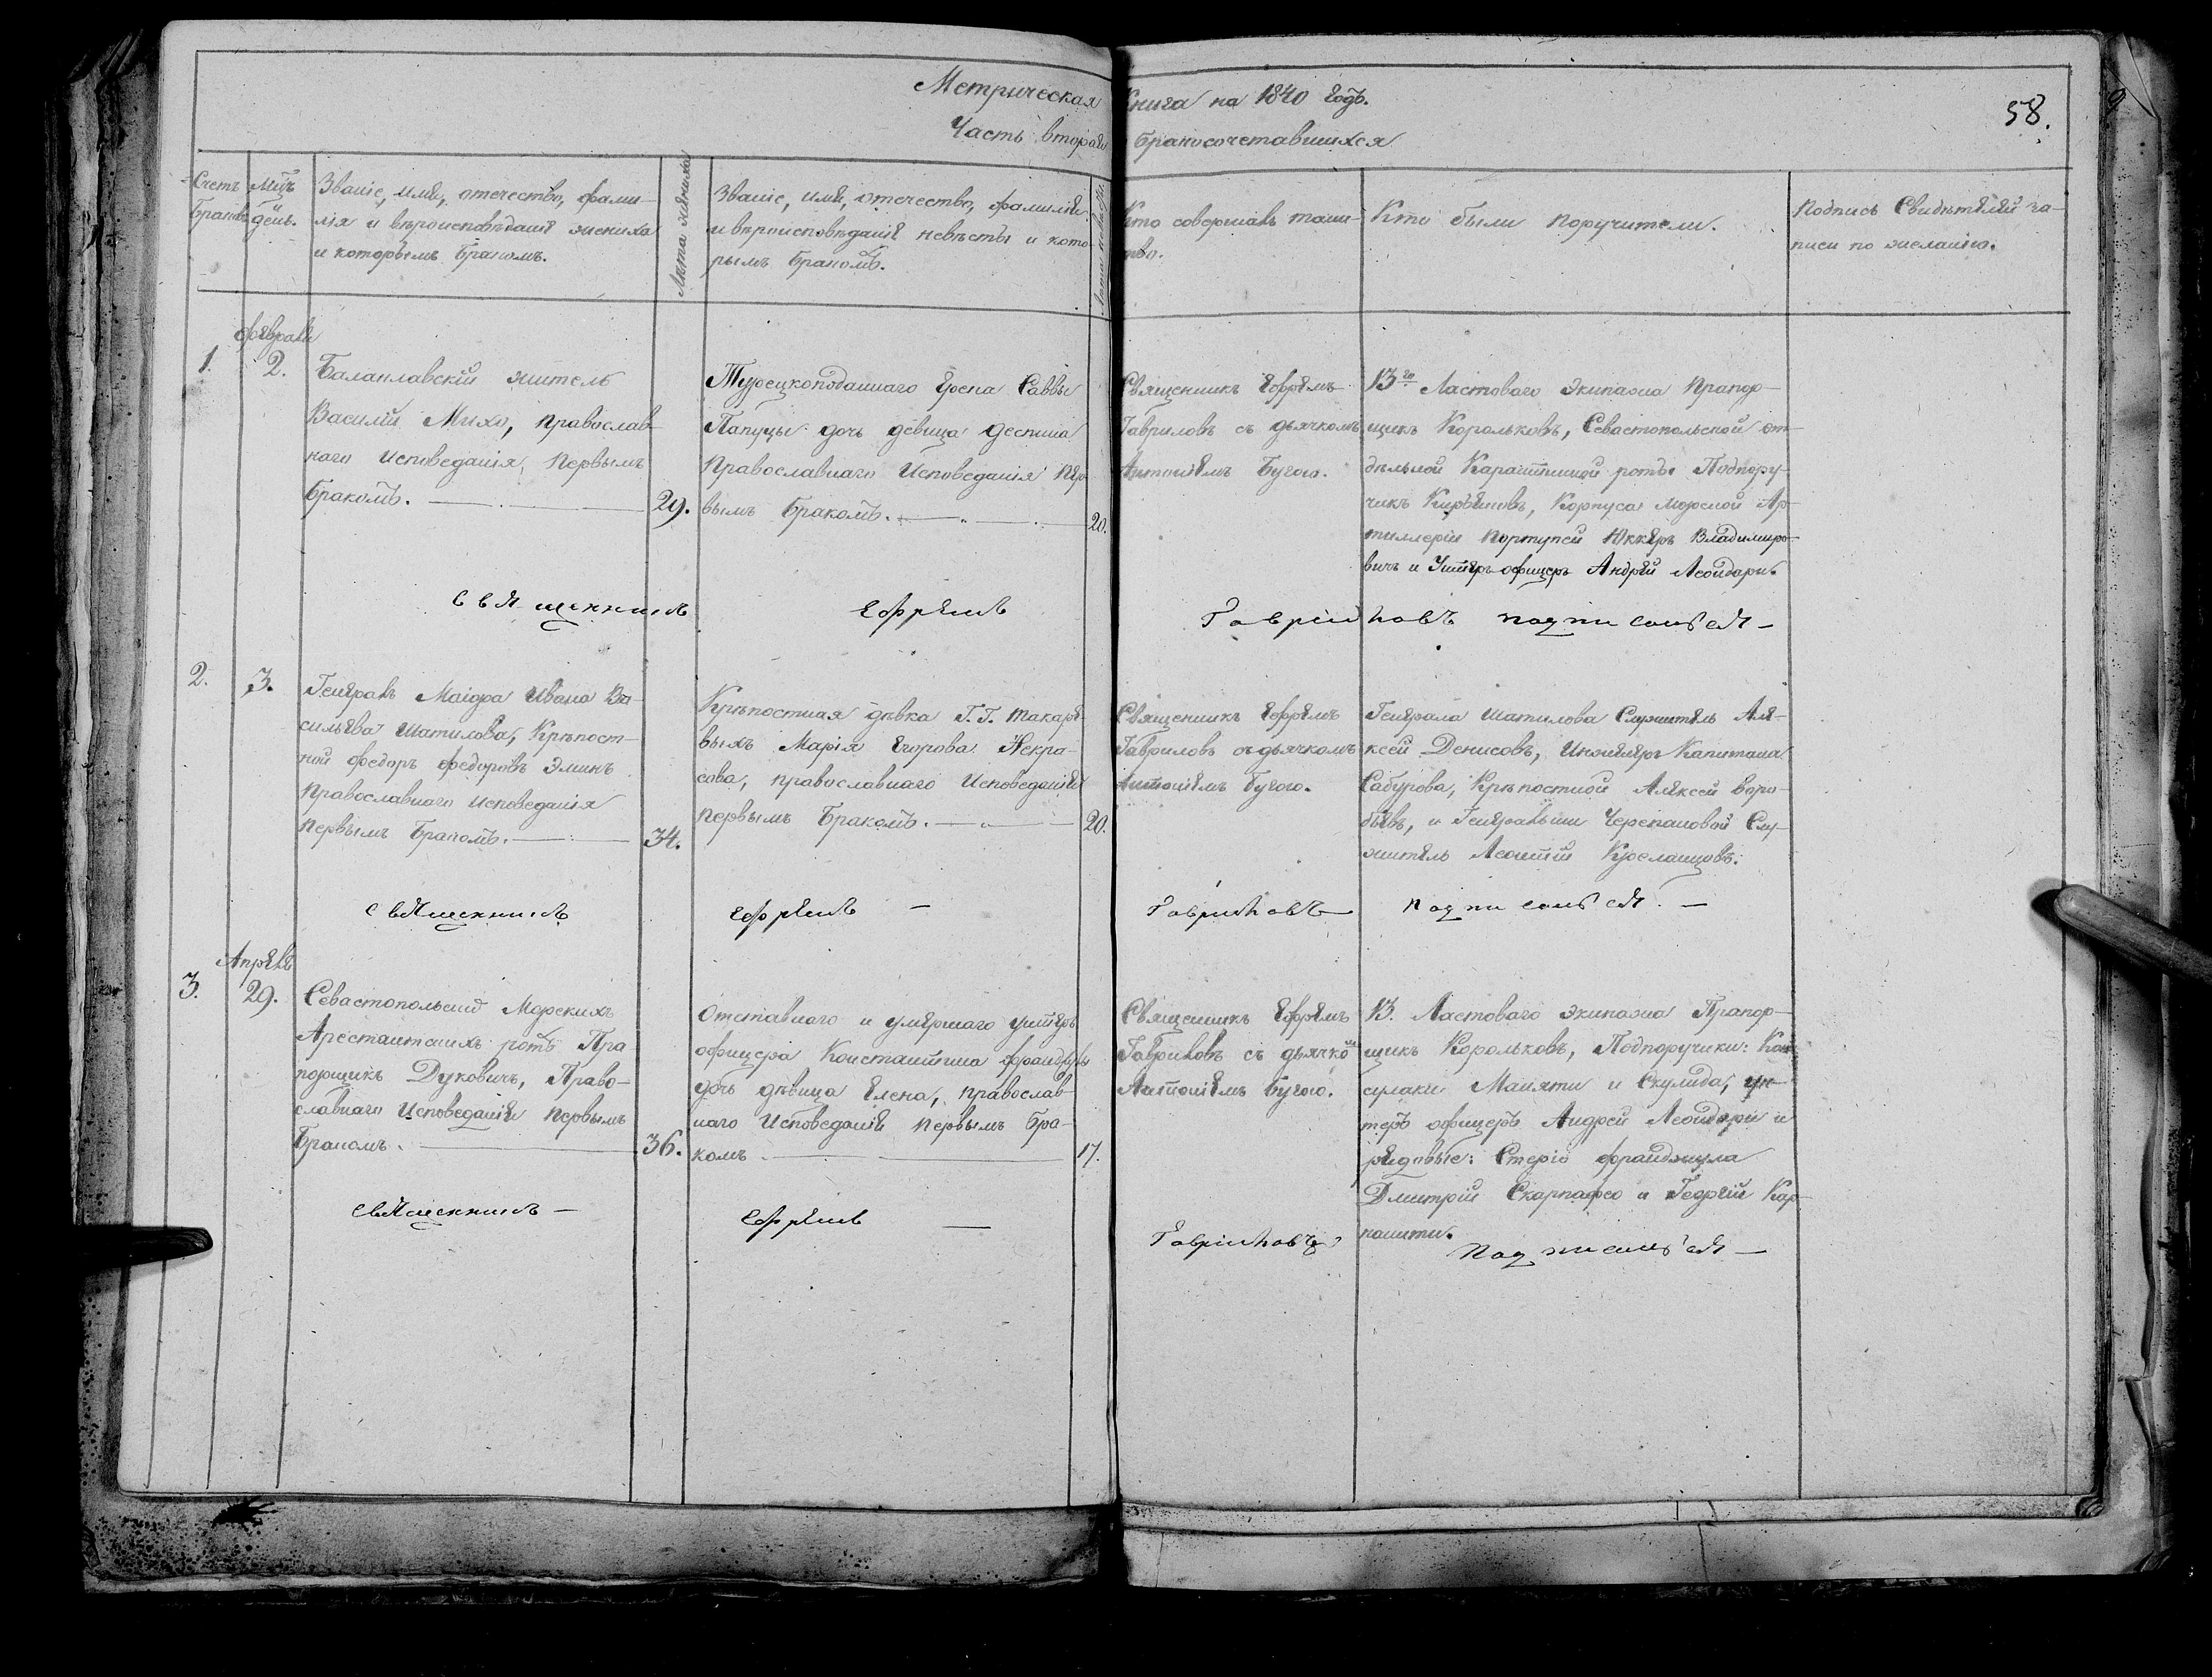 Метрическая Книга на 1840 Годъ.
58.
Часть вторая Бракосочетавшихся
Счетъ Браковъ
Мцъ и день.
Званіе, имя, отечество, фами-
лія и вѣроисповѣданіе жениха
и которымъ бракомъ.
Лѣта жениха
Званіе, имя, отечество, фамилія
и вѣроисповѣданіе невѣсты и кото-
рымъ бракомъ.
Лѣта невѣсты
Кто совершалъ таин-
ство.
Кто были поручители.
Подпись Свидѣтелей за-
писи по желанію.
Февраля
1.
2.
Балаклавскій житель
Василій Михо, православ-
наго исповеданія, первымъ
бракомъ.
29.
Турецкоподаннаго Грека Саввы
Папуцы дочь девица Деспина
Православнаго Исповеданія пер-
вымъ бракомъ.
20.
Священникъ Ефремъ
Гавриловъ съ дьячкомъ
Антоніемъ Бугою.
13го Ластоваго экипажа Прапор-
щикъ Корольковъ, Севастопольской от-
дѣльной Карантинной роты Подпору-
чикъ, Корпуса морской Ар-
тиллеріи Портупей Юнкеръ Владимиро-
вичъ и Унтеръ-офицеръ Андрей Леондари.
Священникъ Ефремъ Гавриловъ подписался
2.
3.
Генералъ Маіора Ивана Ва-
сильева Шатилова, Крѣпост-
ной Федоръ Федоровъ Эминъ
Православнаго исповеданія
первымъ бракомъ.
34.
Крѣпостная дѣвка Г. Г. Макаре-
выхъ Марія Егорова Некра-
сова, православнаго Исповеданія
первымъ бракомъ.
20.
Священникъ Ефремъ
Гавриловъ съ дьячкомъ
Антоніемъ Бугою.
Генерала Шатилова Служитель Але-
ксей Денисовъ, Инженеръ Капитана
Сабурова, Крѣпостной Алексей Воро-
бьевъ, и Генеральши Черепановой Слу-
житель Леонтій
Священникъ Ефремъ Гавриловъ подписался
Апреля
3.
29.
Севастопольскихъ Морскихъ
Арестантскихъ ротъ Пра
порщикъ Дуковичъ, Право-
славнаго Исповеданія первымъ
бракомъ.
36.
Отставнаго и умершаго унтеръ
офицера Константина
дочь девица Елена, православ-
наго Исповеданія первымъ бра-
комъ
17.
Священникъ Ефремъ
Гавриловъ съ дьячкомъ
Антоніемъ Бугою.
13. Ластоваго экипажа Прапор-
щикъ Корольковъ, Подпоручики:
Маняти и Скулида, ун-
теръ офицеръ Андрей Леондари и
рядовые: Стеріо Франджула
Дмитрій Скарпафео и Георгій Кар-
Священникъ Ефремъ Гавриловъ подписался